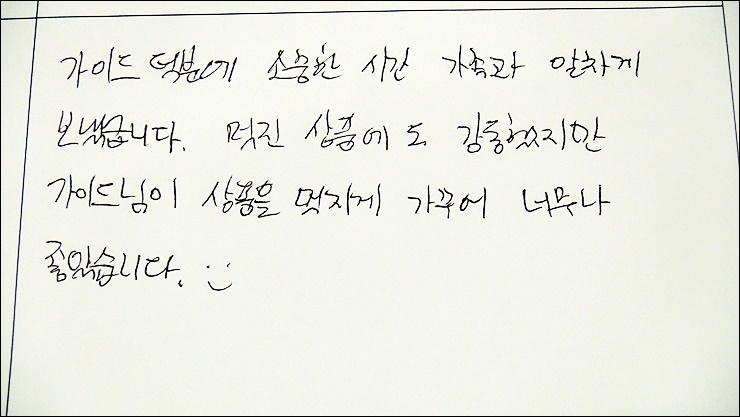 가이드 덕분에 소중한 시간 가족과 알차게
보냈습니다. 멋진 상품에도 감동했지만
가이드님이 상품을 멋지게 가꾸어 너무나
좋았습니다. :)